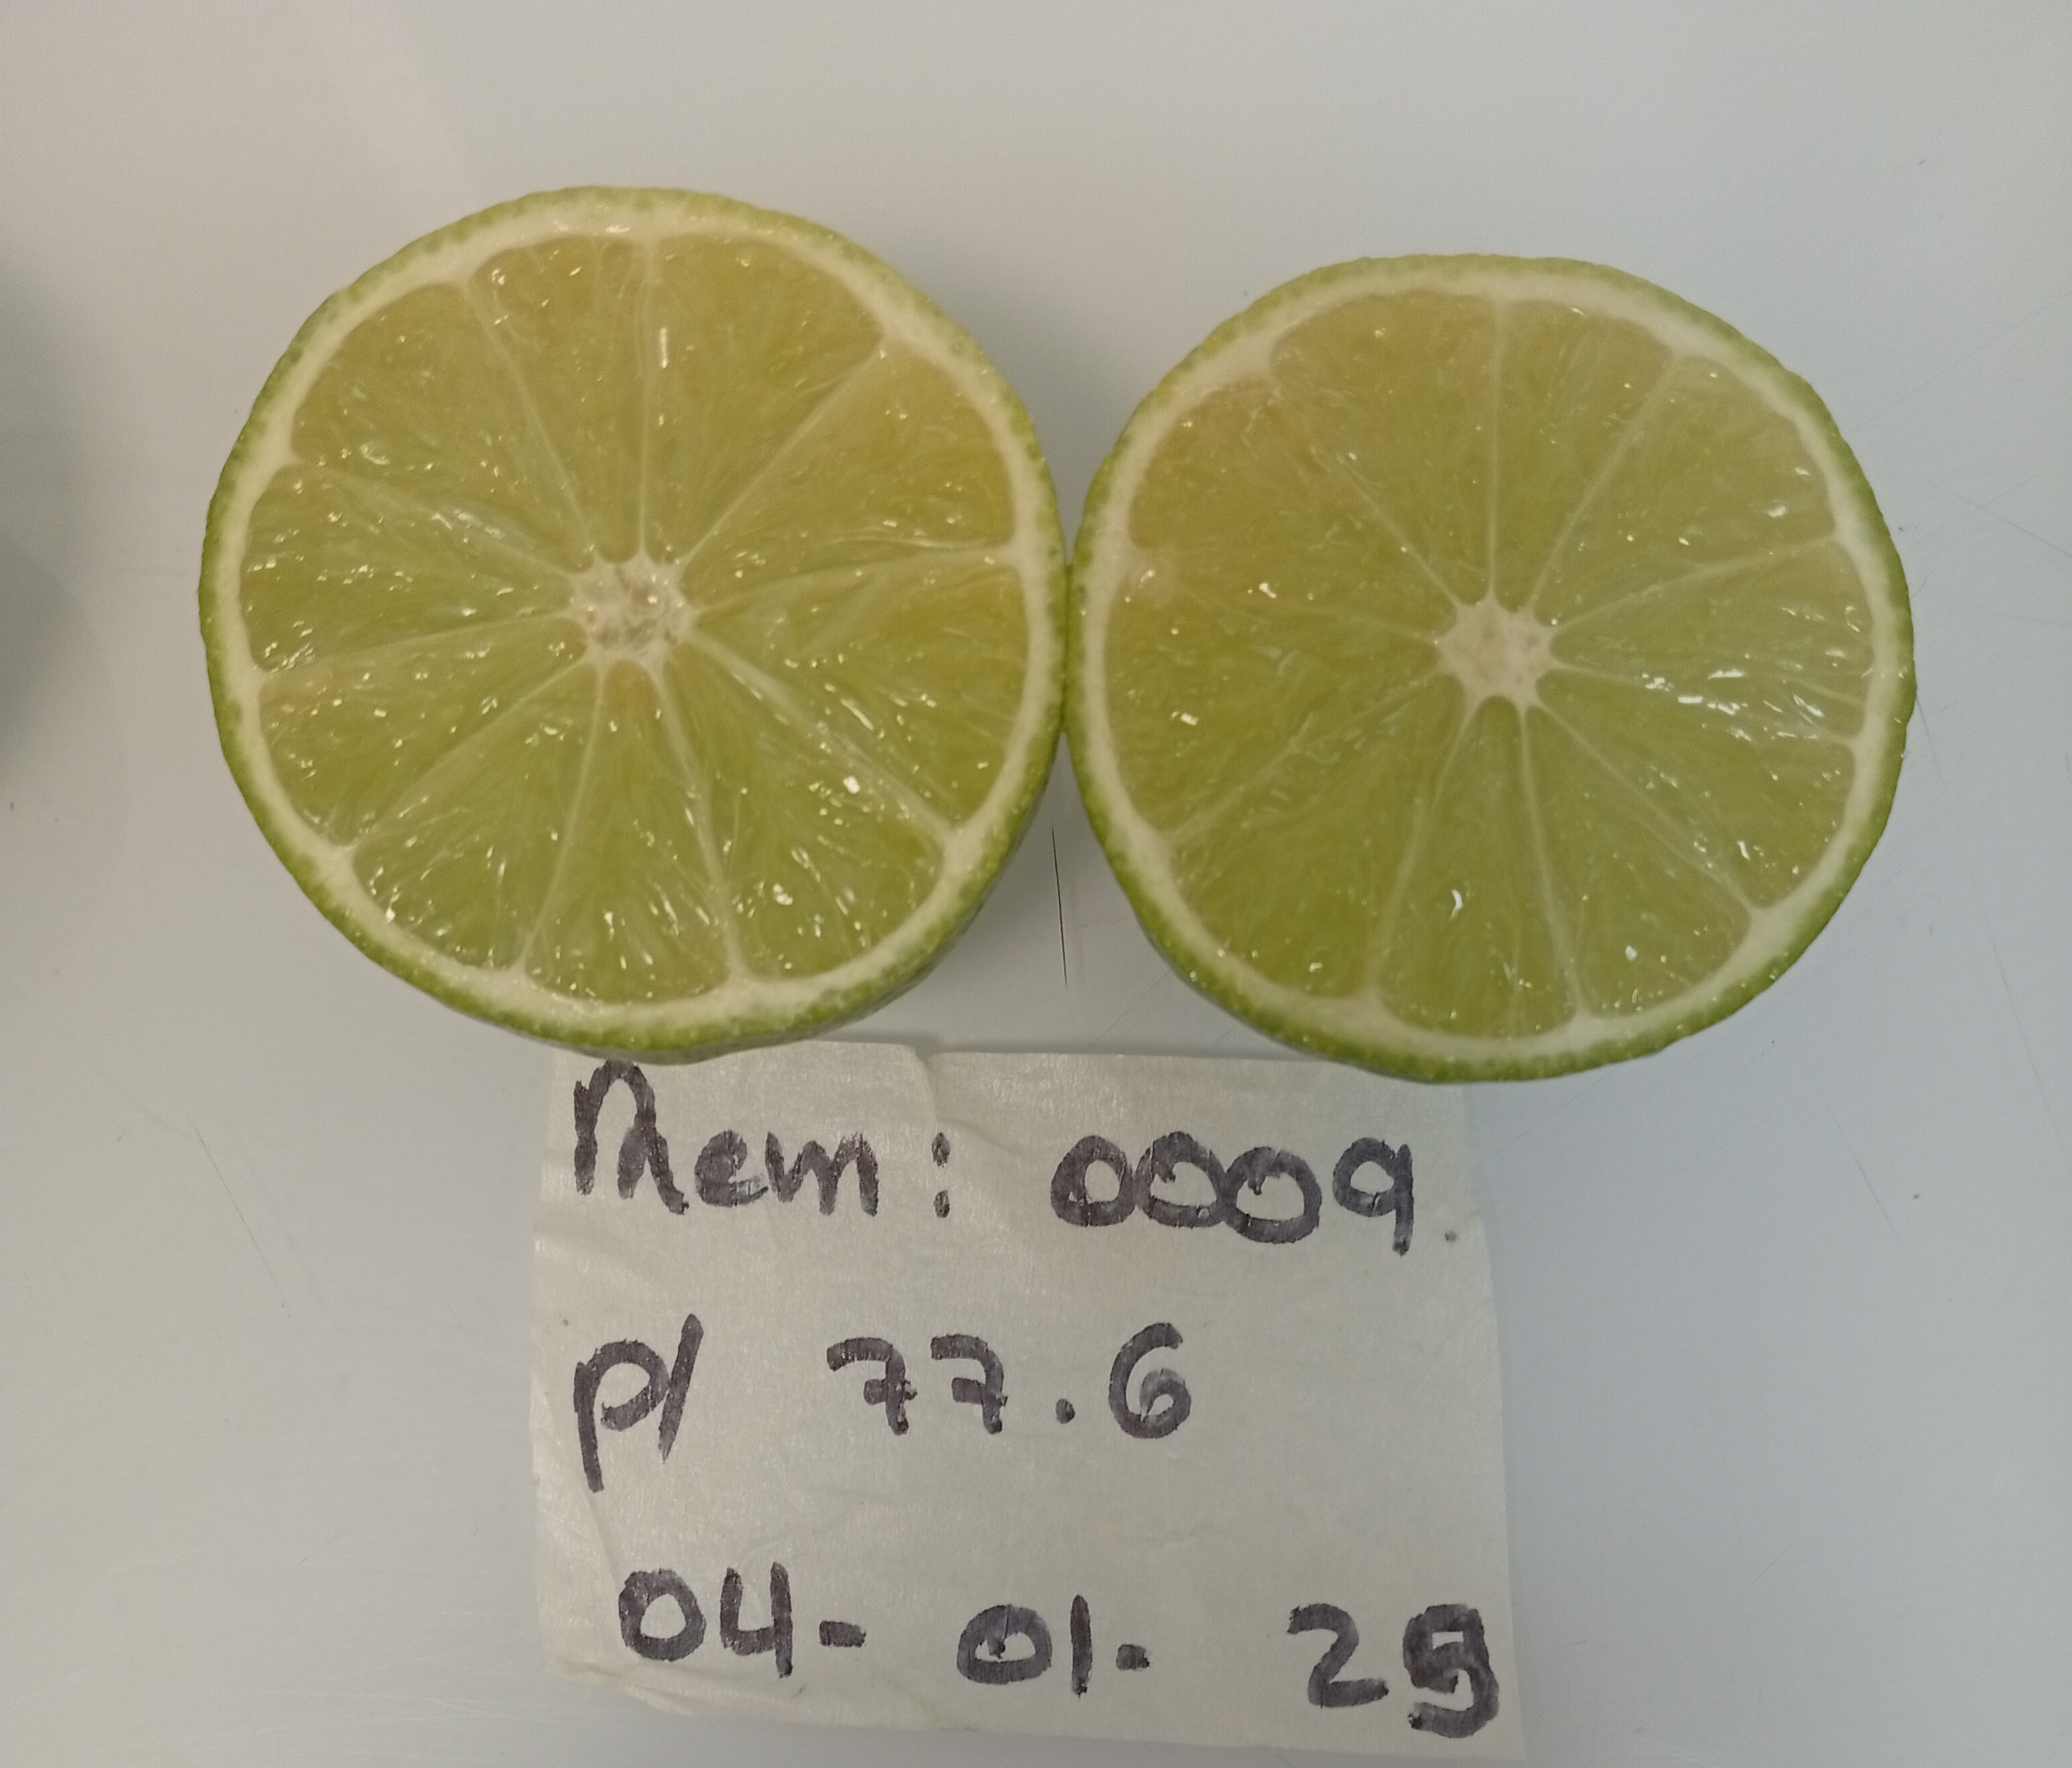 Rem: 0009
p/ 77.6
04-01-25